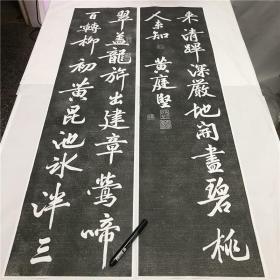 来清蹕深嚴地開盡碧桃
人未知 黄庭堅
翠蓋龍旂出建章鶯啼
百囀柳初黄昆池冰泮三